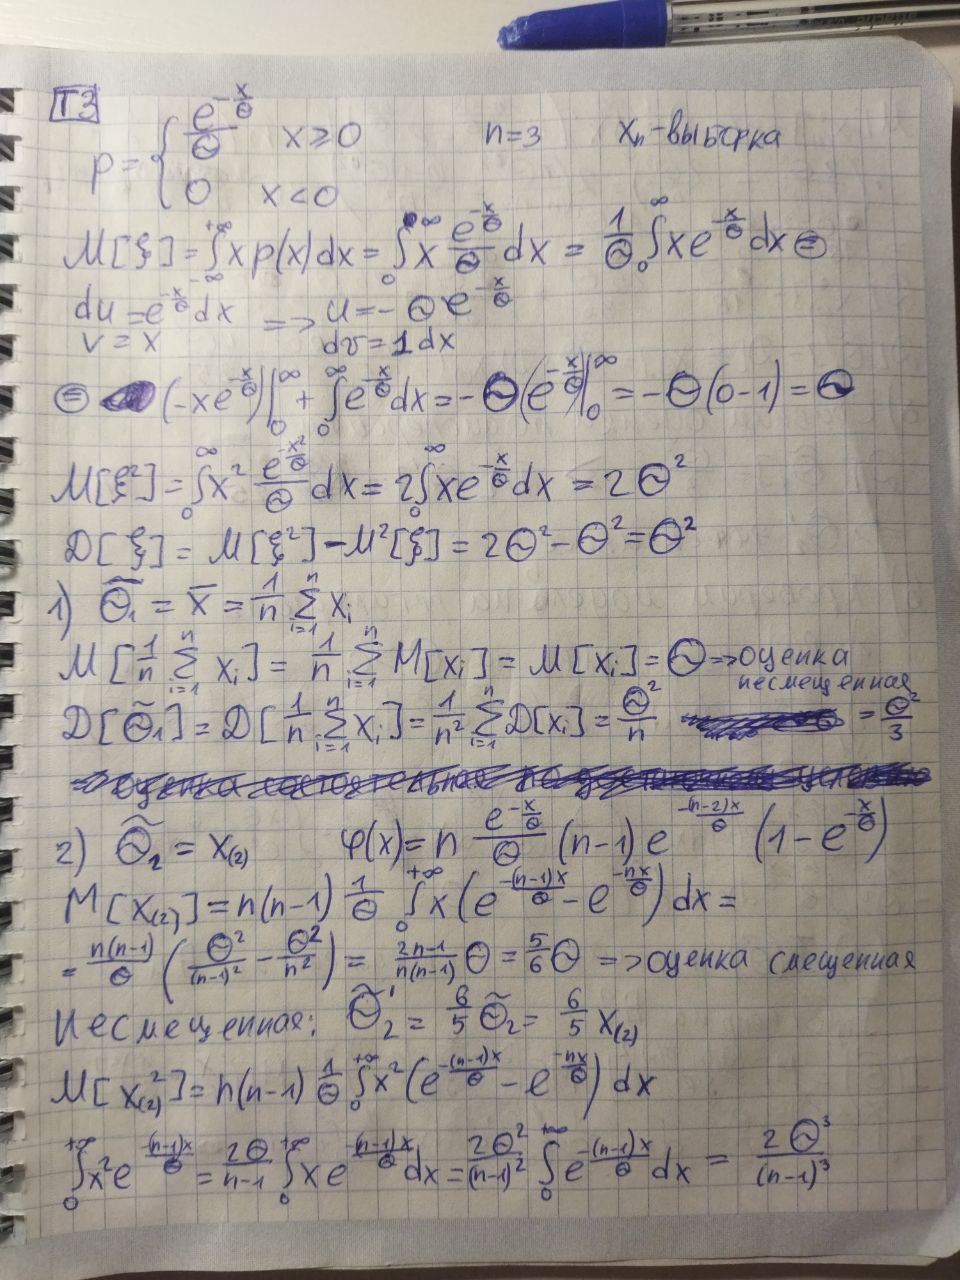 T3
p = { e^{-x/Θ}/Θ x ≥ 0 n=3 Xₙ-выборка
0 x < 0
M[ξ] = ∫_{-∞}^{+∞} x p(x) dx = ∫_0^∞ x e^{-x/Θ}/Θ dx = 1/Θ ∫_0^∞ x e^{-x/Θ} dx ⊜
du = e^{-x/Θ} dx => u = -Θ e^{-x/Θ}
v = x dv = 1 dx
⊜ (-x e^{-x/Θ})|_0^∞ + ∫_0^∞ e^{-x/Θ} dx = -Θ(e^{-x/Θ})|_0^∞ = -Θ(0-1) = Θ
M[ξ²] = ∫_0^∞ x² e^{-x²/Θ}/Θ dx = 2∫_0^∞ x e^{-x/Θ} dx = 2Θ²
D[ξ] = M[ξ²] - M²[ξ] = 2Θ² - Θ² = Θ²
1) Θ̃₁ = x̄ = 1/n Σ_{i=1}^n xᵢ
M[1/n Σ_{i=1}^n xᵢ] = 1/n Σ_{i=1}^n M[xᵢ] = M[xᵢ] = Θ => оценка
несмещенная
D[Θ̃₁] = D[1/n Σ_{i=1}^n xᵢ] = 1/n² Σ_{i=1}^n D[xᵢ] = Θ²/n = Θ²/3
2) Θ̃₂ = x₍₂₎ φ(x) = n e^{-x/Θ}/Θ (n-1) e^{-(n-2)x/Θ} (1 - e^{-x/Θ})
M[x₍₂₎] = n(n-1) 1/Θ ∫_0^{+∞} x (e^{-(n-1)x/Θ} - e^{-nx/Θ}) dx =
= n(n-1)/Θ (Θ²/(n-1)² - Θ²/n²) = (2n-1)/(n(n-1)) Θ = 5/6 Θ => оценка смещенная
Несмещенная: Θ̃₂' = 6/5 Θ̃₂ = 6/5 x₍₂₎
M[x₍₂₎²] = n(n-1) 1/Θ ∫_0^{+∞} x² (e^{-(n-1)x/Θ} - e^{-nx/Θ}) dx
∫_0^{+∞} x² e^{-(n-1)x/Θ} = 2Θ/(n-1) ∫_0^{+∞} x e^{-(n-1)x/Θ} dx = 2Θ²/(n-1)² ∫_0^{+∞} e^{-(n-1)x/Θ} dx = 2Θ³/(n-1)³